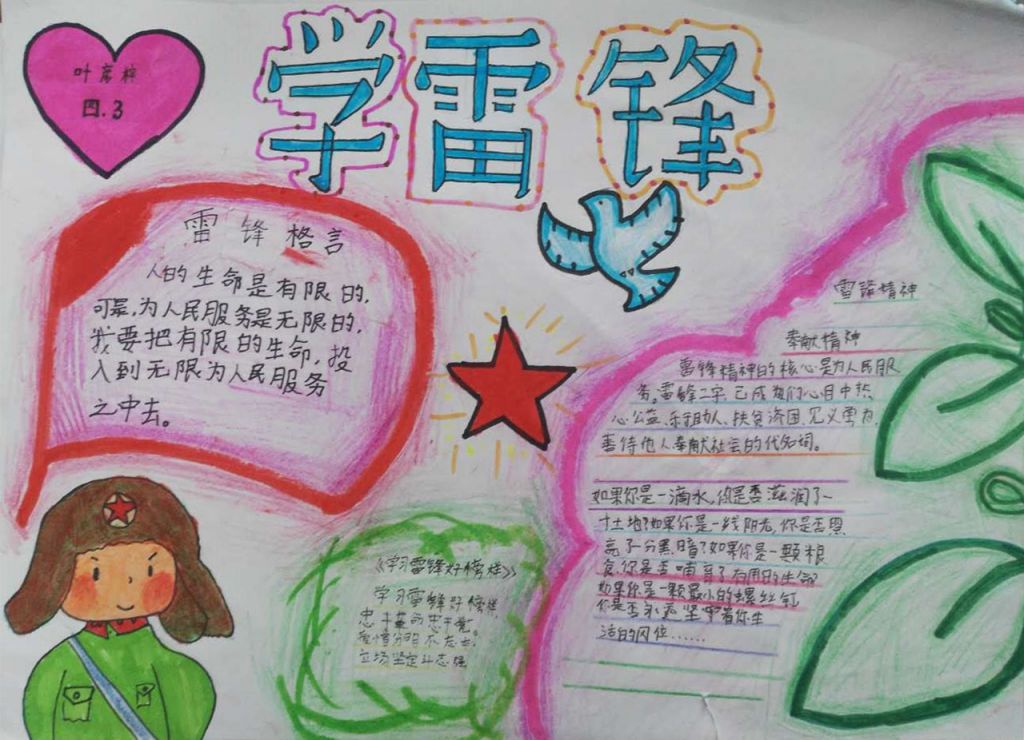 学雷锋
叶席梓
四.3
雷锋格言
人的生命是有限的,
可是,为人民服务是无限的,
我要把有限的生命,投
入到无限为人民服务
之中去。
《学习雷锋好榜样》
学习雷锋好榜样,
忠于革命忠于党。
爱憎分明不忘本,
立场坚定斗志强
雷锋精神
奉献精神
雷锋精神的核心是为人民服
务。雷锋二字,已成我们心目中热
心公益、乐于助人、扶贫济困、见义勇为、
善待他人奉献社会的代名词。
如果你是一滴水,你是否滋润了一
寸土地?如果你是一线阳光,你是否照
亮了一分黑暗?如果你是一颗粮
食,你是否哺育了有用的生命?
如果你是一颗最小的螺丝钉
你是否永远坚守着你生
活的岗位……